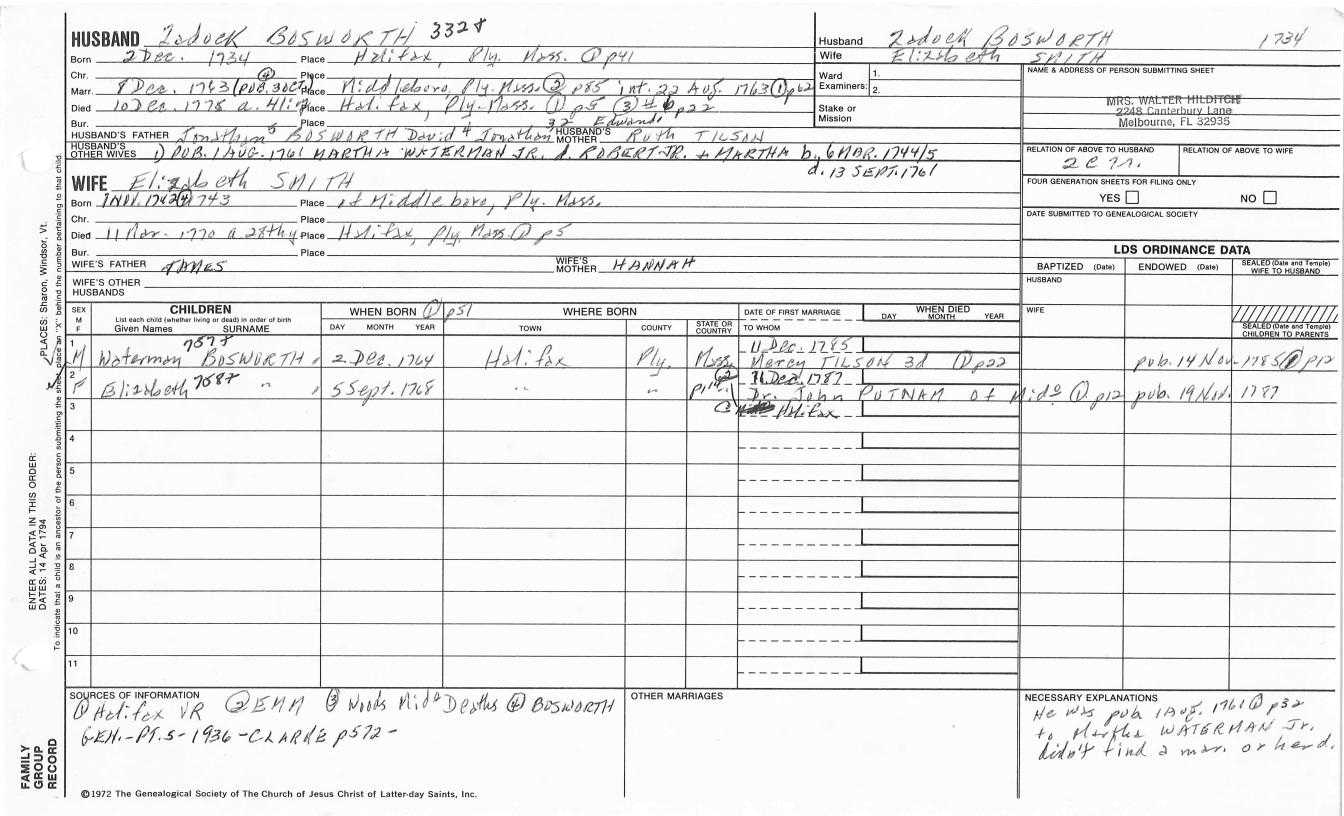 HUSBAND Zadock BOSWORTH 3328
Born 2 Dec. 1734 Place Halifax, Ply. Mass. ① p41
Chr. Place
④
Marr. 8 Dec. 1763 (PUB. 3 OCT) Place Middleboro, Ply. Mass. ② p85 int. 22 Aug. 1763 ① p62
Died 10 Dec. 1775 a. 41 Place Halifax, Ply. Mass. ① p5 ③ #6 p22
Bur. Place 32 Edward
HUSBAND'S FATHER Jonathan⁵ BOSWORTH David⁴ Jonathan HUSBAND'S MOTHER Ruth TILSON
HUSBAND'S OTHER WIVES 1) PUB. 1 AUG. 1761 MARTHA WATERMAN JR. d. ROBERT JR. + MARTHA b. 6 MAR. 1744/5
d. 13 SEPT. 1761
WIFE Elizabeth SMITH
Born 1 NOV. 1742 ④ 1743 Place of Middleboro, Ply. Mass.
Chr. Place
Died 11 Mar. 1770 a 28thy Place Halifax, Ply. Mass ① p5
Bur. Place
WIFE'S FATHER JAMES WIFE'S MOTHER HANNAH
WIFE'S OTHER HUSBANDS
Husband Zadock BOSWORTH 1734
Wife Elizabeth SMITH
Ward Examiners: 1.
2.
Stake or Mission
NAME & ADDRESS OF PERSON SUBMITTING SHEET
MRS. WALTER HILDITCH
2248 Canterbury Lane
Melbourne, FL 32935
RELATION OF ABOVE TO HUSBAND RELATION OF ABOVE TO WIFE
2c 7r.
FOUR GENERATION SHEETS FOR FILING ONLY
YES NO
DATE SUBMITTED TO GENEALOGICAL SOCIETY
LDS ORDINANCE DATA
BAPTIZED (Date) ENDOWED (Date) SEALED (Date and Temple) WIFE TO HUSBAND
HUSBAND
WIFE
SEALED (Date and Temple) CHILDREN TO PARENTS
SEX M F
CHILDREN
List each child (whether living or dead) in order of birth
Given Names SURNAME
WHEN BORN ① p51
DAY MONTH YEAR
WHERE BORN
TOWN COUNTY STATE OR COUNTRY
DATE OF FIRST MARRIAGE
TO WHOM
WHEN DIED
DAY MONTH YEAR
1 7578 11 Dec. 1785
M Waterman BOSWORTH 2 Dec. 1764 Halifax Ply. Mass. Mercy TILSON 3d ① p22 pub. 14 Nov. 1785 ① p12
2 7587 11 Dec. 1787
F Elizabeth " 5 Sept. 1768 " " " Dr. John PUTNAM of Mido ① p12 pub. 19 Nov. 1787
3 Halifax
4
5
6
7
8
9
10
11
SOURCES OF INFORMATION
① Halifax VR ② EMM ③ Woods Mido Deaths ④ BOSWORTH
GEN.-PT. 5-1936-CLARKE p572-
OTHER MARRIAGES
NECESSARY EXPLANATIONS
He was pub 1 Aug. 1761 ① p32
to Martha WATERMAN Jr.
didn't find a mar. or her d.
©1972 The Genealogical Society of The Church of Jesus Christ of Latter-day Saints, Inc.
FAMILY GROUP RECORD
ENTER ALL DATA IN THIS ORDER:
DATES: 14 Apr 1794 PLACES: Sharon, Windsor, Vt.
To indicate that a child is an ancestor of the person submitting the sheet, place an "X" behind the number pertaining to that child.